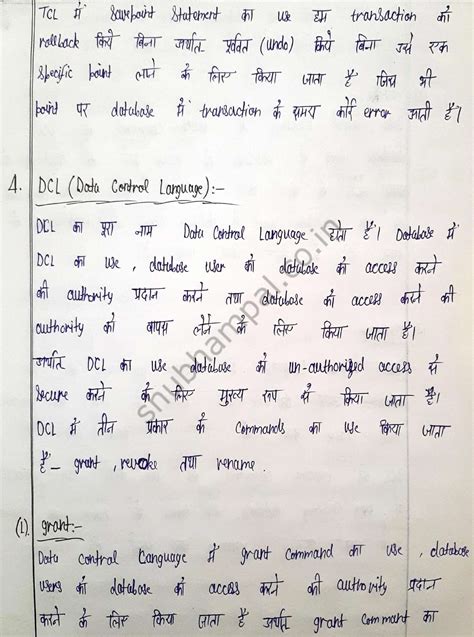 TCL में Savepoint Statement का use हम transaction को
rollback किये बिना अर्थात पूर्ववत (undo) किये बिना उसे एक
specific point लाने के लिए किया जाता है जिस भी
point पर database में transaction के समय कोई error आती है।
4. DCL (Data Control Language):-
DCL का पूरा नाम Data Control Language होता है। Database में
DCL का use, database user को database को access करने
की authority प्रदान करने तथा database को access करने की
authority को वापस लेने के लिए किया जाता है।
अर्थात DCL का use database को un-authorized access से
secure करने के लिए मुख्य रूप से किया जाता है।
DCL में तीन प्रकार के commands का use किया जाता
है- grant, revoke तथा rename.
(1). grant:-
Data Control Language में grant command का use, database
users को database को access करने की authority प्रदान
करने के लिए किया जाता है अर्थात grant command का
shubhampal.co.in